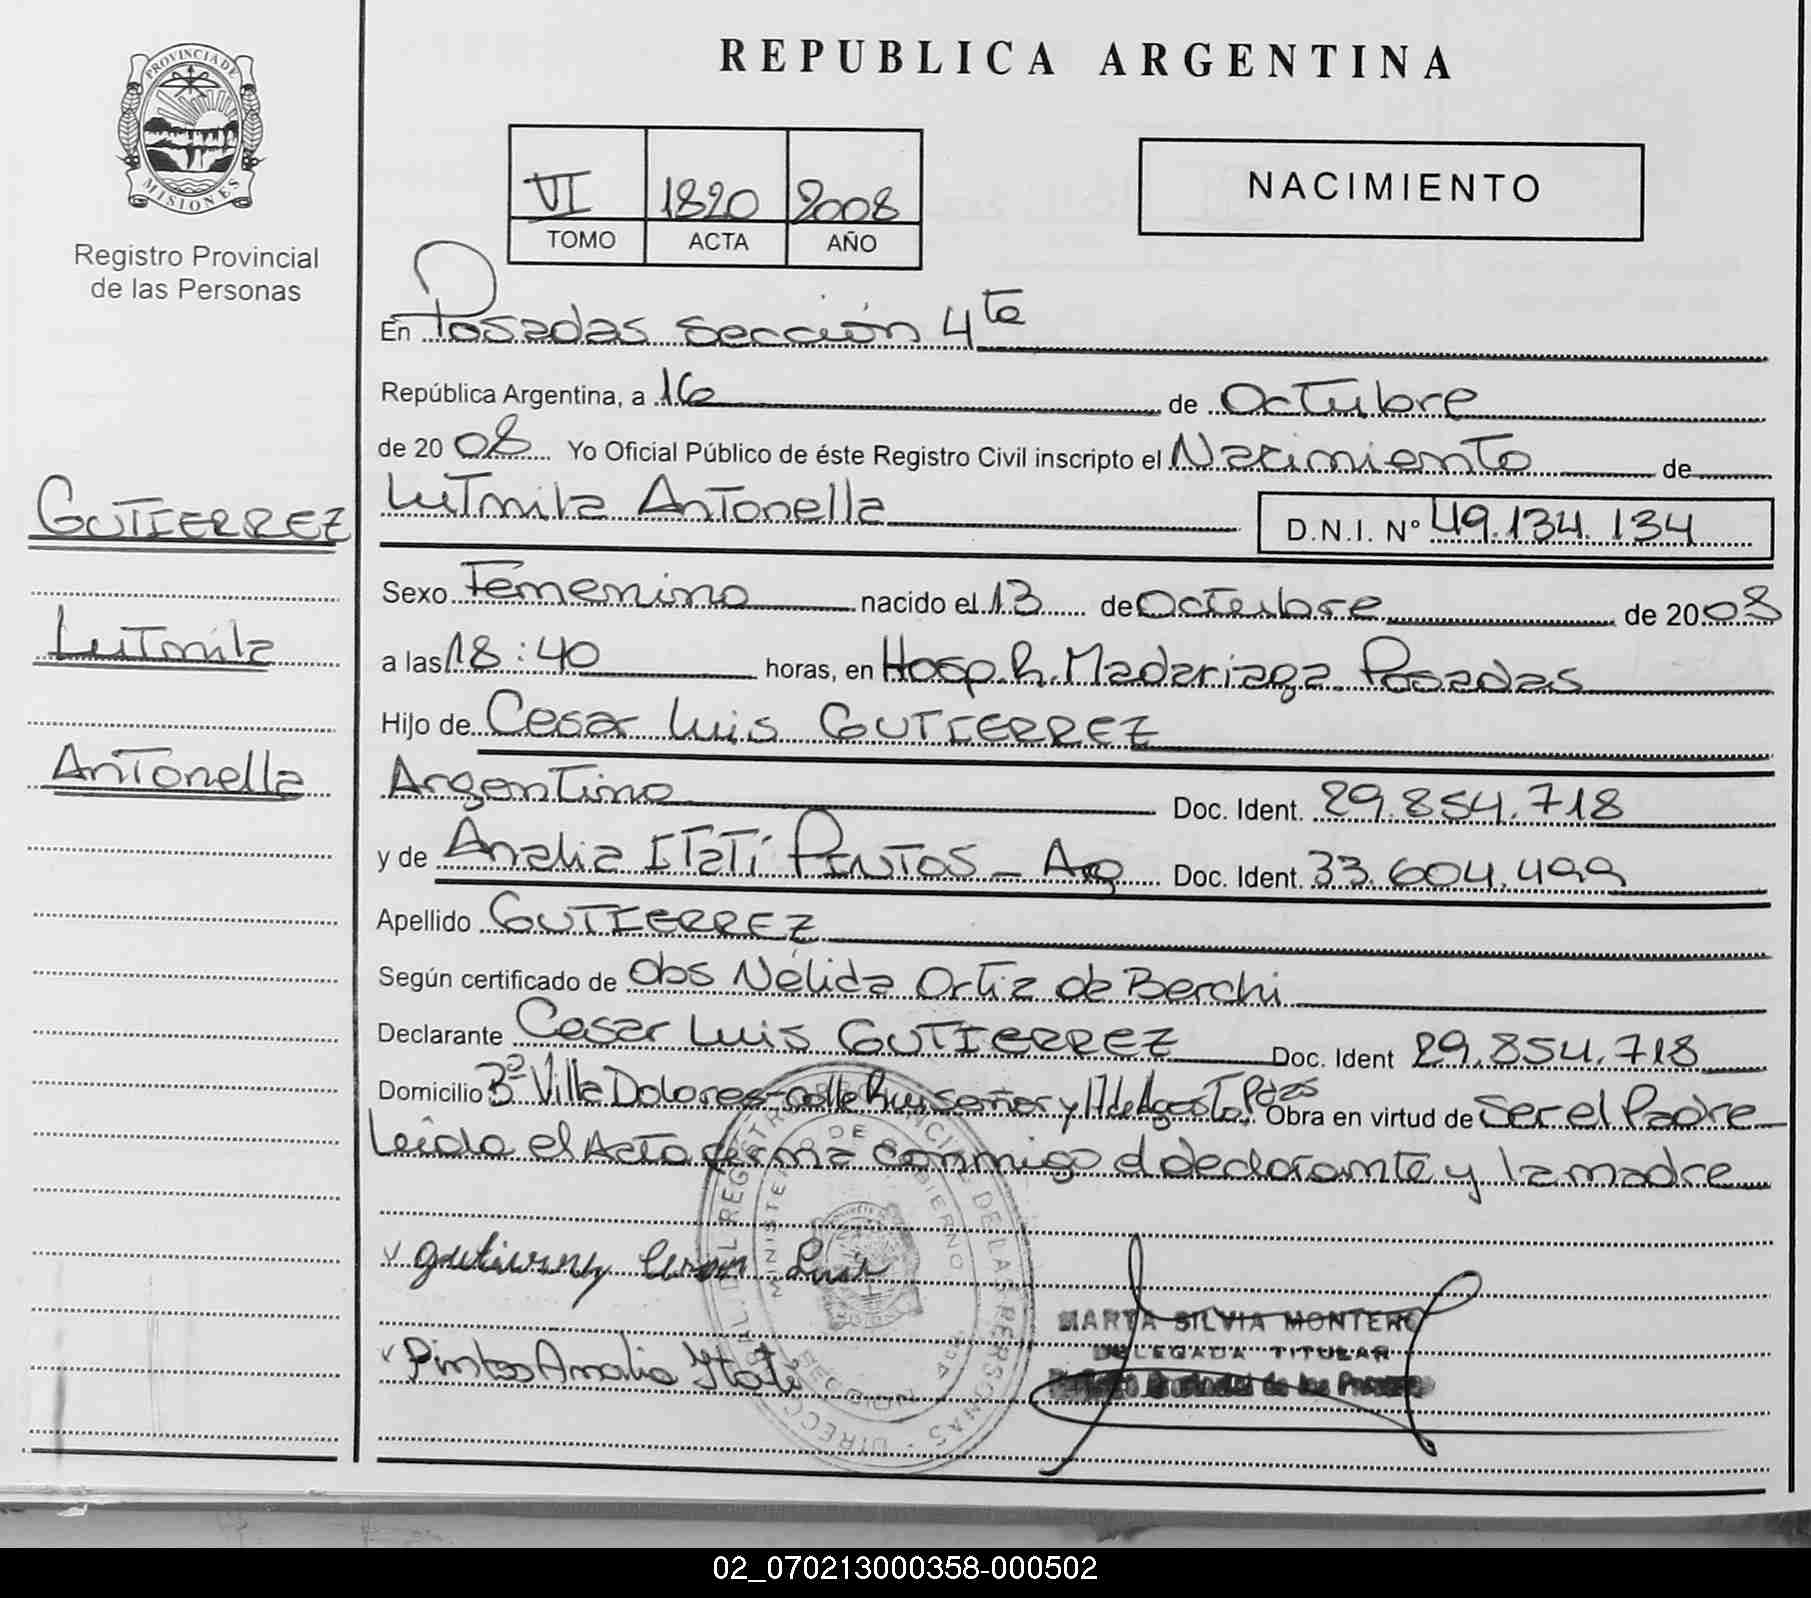 PROVINCIA DE
MISIONES
Registro Provincial
de las Personas
GUTIERREZ
Lutmila
Antonella
REPUBLICA ARGENTINA
VI 1820 2008
TOMO ACTA AÑO
NACIMIENTO
En Posadas sección 4ta
República Argentina, a 16 de Octubre
de 2008 Yo Oficial Público de éste Registro Civil inscripto el Nacimiento de
Lutmila Antonella D.N.I. Nº 49.134.134
Sexo Femenino nacido el 13 de Octubre de 2008
a las 18:40 horas, en Hosp. R. Madariaga Posadas
Hijo de Cesar Luis GUTIERREZ
Argentino Doc. Ident. 29.854.718
y de Analia Itatí PINTOS - Arg Doc. Ident. 33.604.499
Apellido GUTIERREZ
Según certificado de Obs Nélida Ortiz de Berchi
Declarante Cesar Luis GUTIERREZ Doc. Ident 29.854.718
Domicilio Bº Villa Dolores - calle Ruiseñor y Obra en virtud de Ser el Padre
Leída el Acta firma conmigo el declarante y la madre
Gutierrez Cesar Luis
Pintos Analia Itatí
MARTA SILVIA MONTERO
DELEGADA TITULAR
DIRECCION GRAL. DEL REGISTRO PROVINCIAL DE LAS PERSONAS
MINISTERIO DE GOBIERNO
02_070213000358-000502